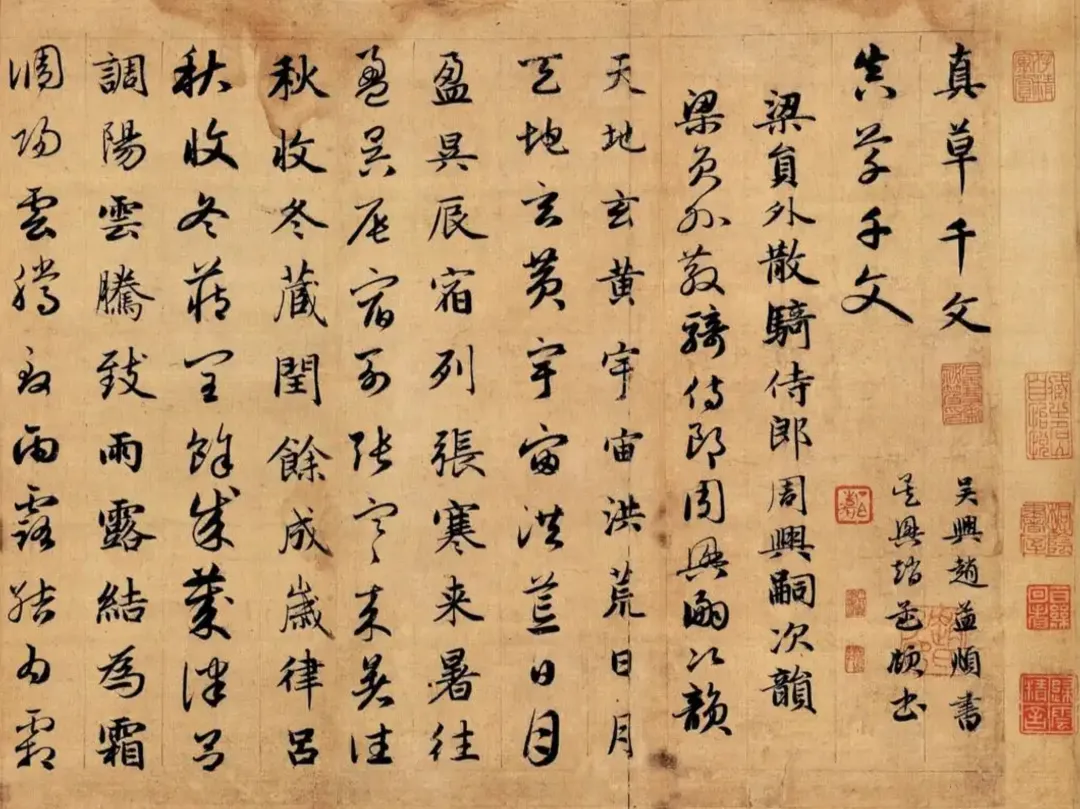 真草千文
吴興趙孟頫書
真草千文
吴興趙孟頫書
梁員外散騎侍郎周興嗣次韻
梁員外散騎侍郎周興嗣次韻
天地玄黄宇宙洪荒日月
天地玄黄宇宙洪荒日月
盈昃辰宿列張寒来暑往
盈昃辰宿列張寒来暑往
秋收冬蔵閏餘成歲律呂
秋收冬蔵閏餘成歲律呂
調陽雲騰致雨露結為霜
調陽雲騰致雨露結為霜